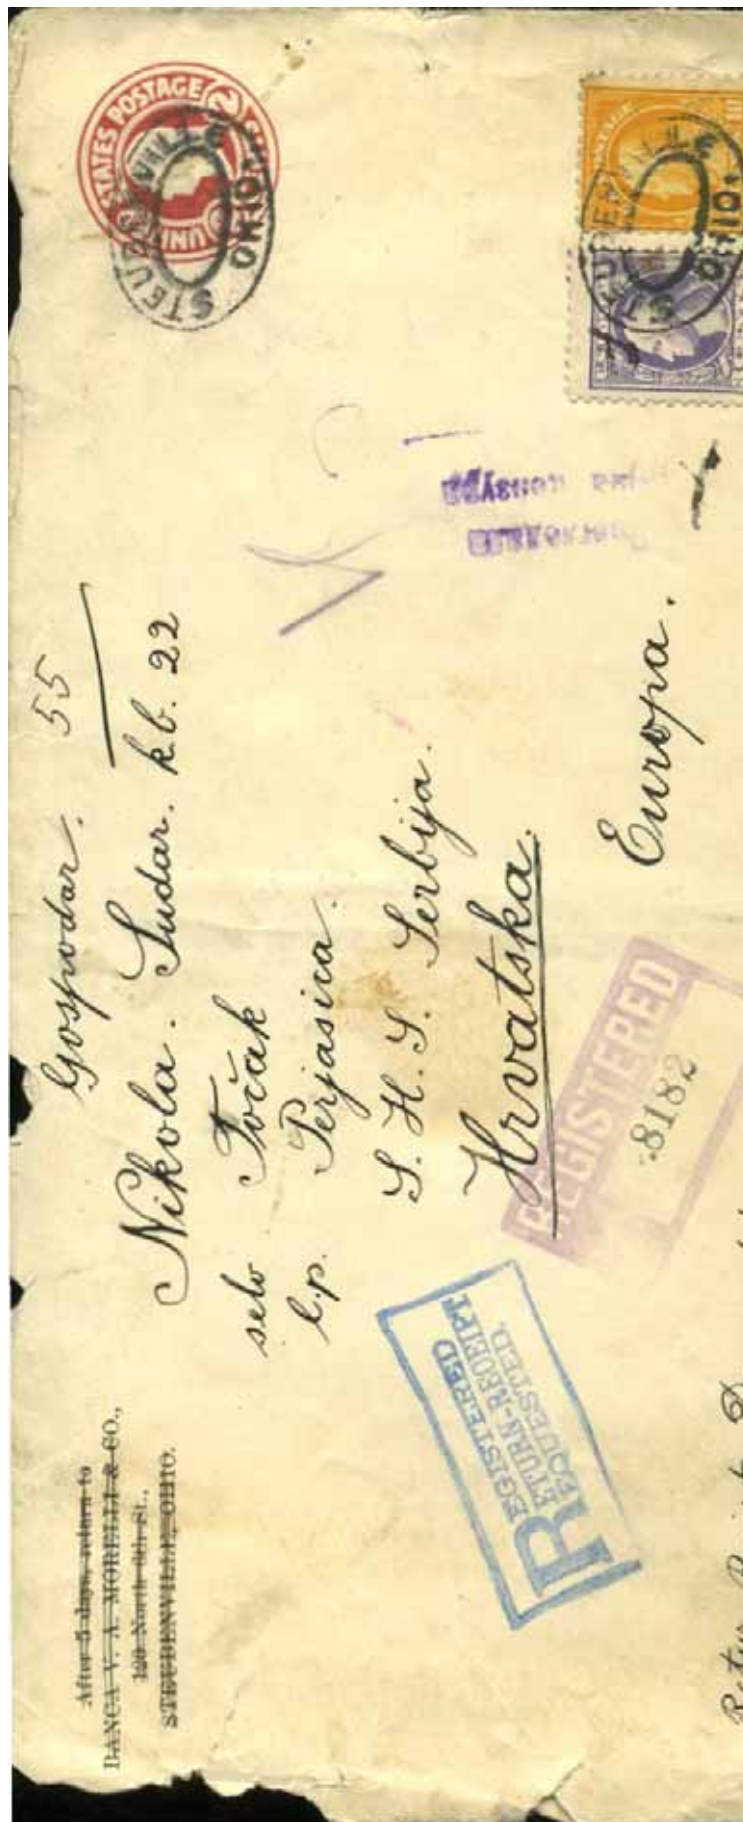 After 5 days, return to
BANCA V. A. MORELLI & CO.,
120 North 6th St.,
STEUBENVILLE, OHIO.
UNITED STATES POSTAGE
STEUBENVILLE
OHIO
STEUBENVILLE
OHIO.
Gospodar. 55
Nikola. Sudar. k.b. 22
selo Točak
l.p. Perjasica.
S. H. S. Serbija.
Hrvatska.
Europa.
REGISTERED
RETURN-RECEIPT
REQUESTED.
REGISTERED
8182